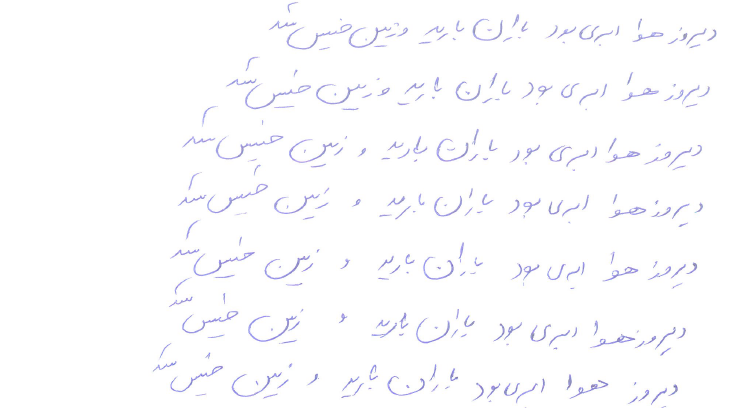 دیروز هوا ابری بود باران بارید و زمین خیس شد
دیروز هوا ابری بود باران بارید و زمین خیس شد
دیروز هوا ابری بود باران بارید و زمین خیس شد
دیروز هوا ابری بود باران بارید و زمین خیس شد
دیروز هوا ابری بود باران بارید و زمین خیس شد
دیروز هوا ابری بود باران بارید و زمین خیس شد
دیروز هوا ابری بود باران بارید و زمین خیس شد